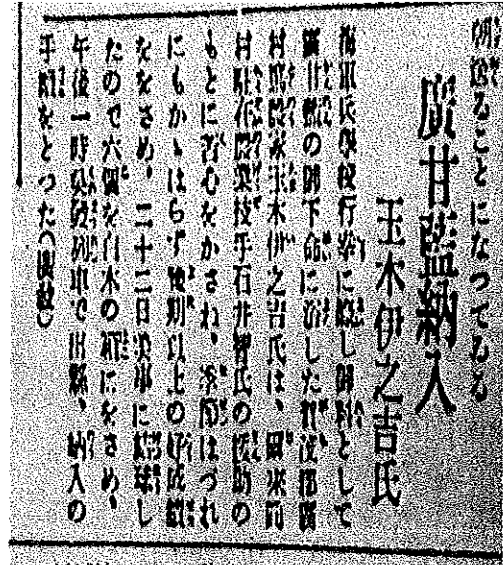 朝送ることになつてゐる
廣甘藍納入
玉木伊之吉氏
海軍兵學校行幸に際し御料として
廣甘藍の御下命に浴した賀茂郡廣
村篤農家玉木伊之吉氏は、爾来同
村駐在農業技手石井 氏の援助の
もとに苦心をかさね、季節はづれ
にもかゝはらず豫期以上の好成績
ををさめ、二十二日美事に結球し
たので六個を白木の箱にをさめ、
午後一時 列車で出縣、納入の
手順をとつた